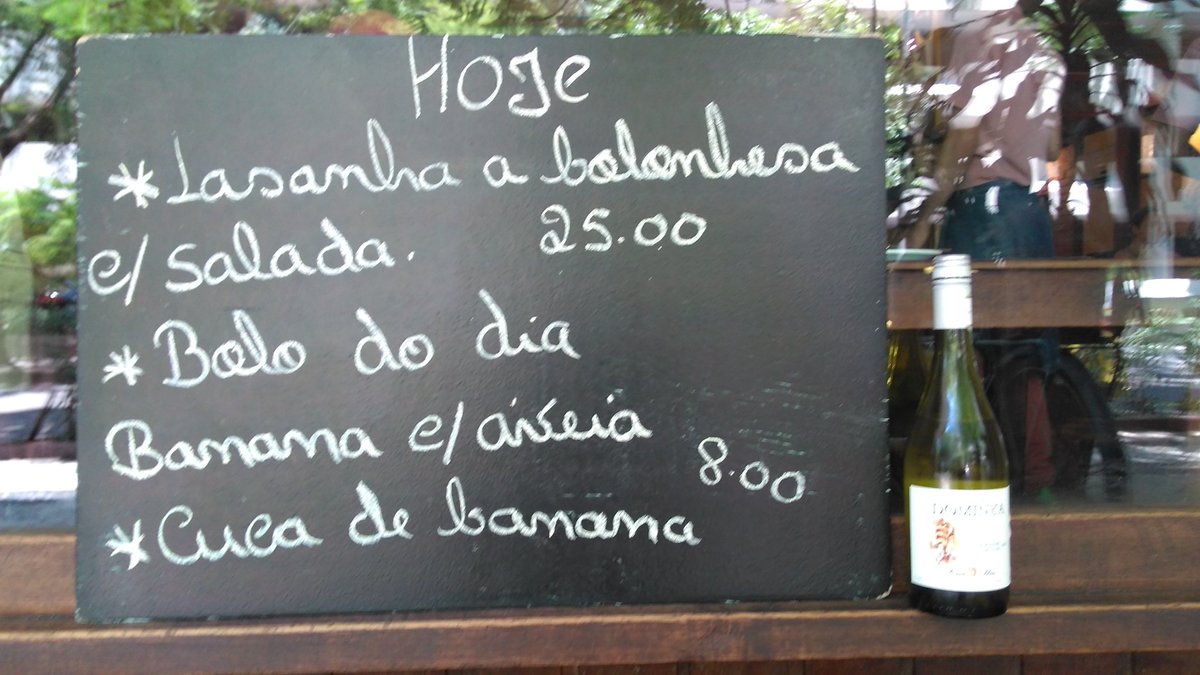 HOJE
*Lasanha a bolonhesa
c/ salada. 25.00
*Bolo do dia
Banana c/ áveia
8.00
*Cuca de banana